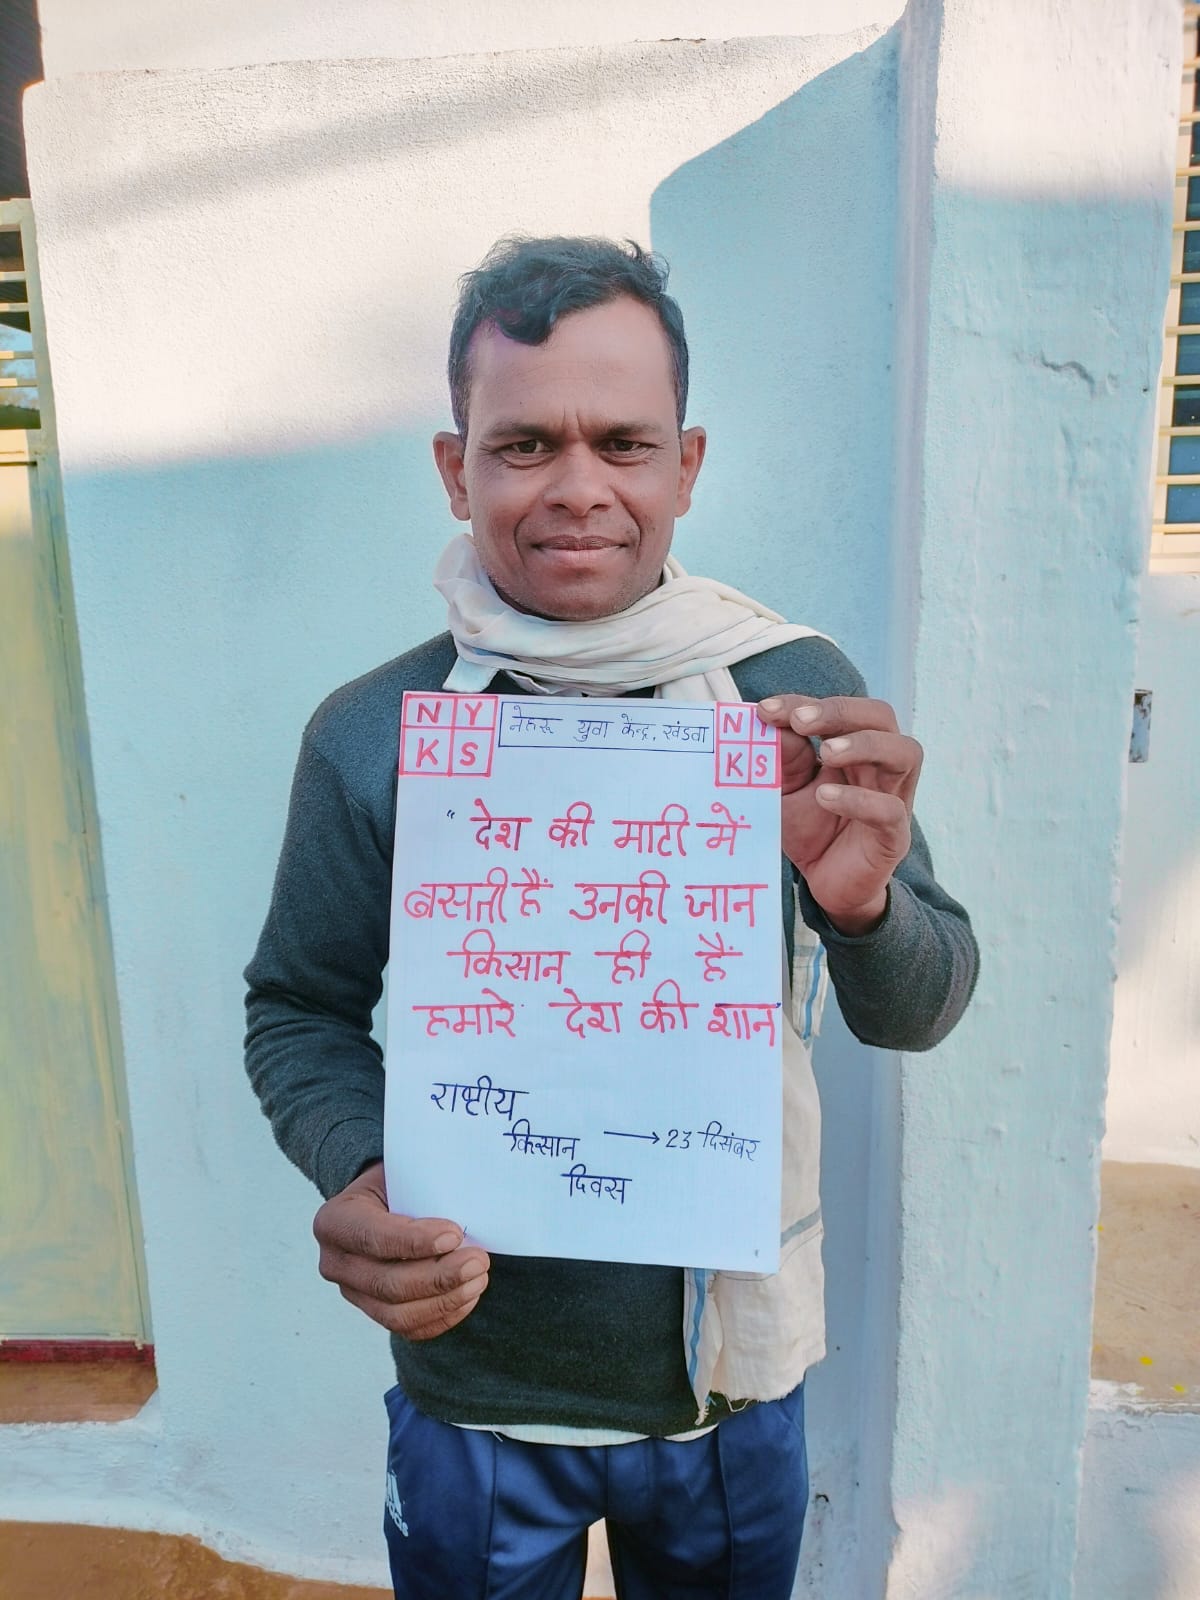 N Y
K S
नेहरू युवा केन्द्र, खंडवा
N Y
K S
"देश की माटी में
बसती हैं उनकी जान
किसान ही हैं
हमारे देश की शान"
राष्ट्रीय
किसान → 23 दिसंबर
दिवस
adidas